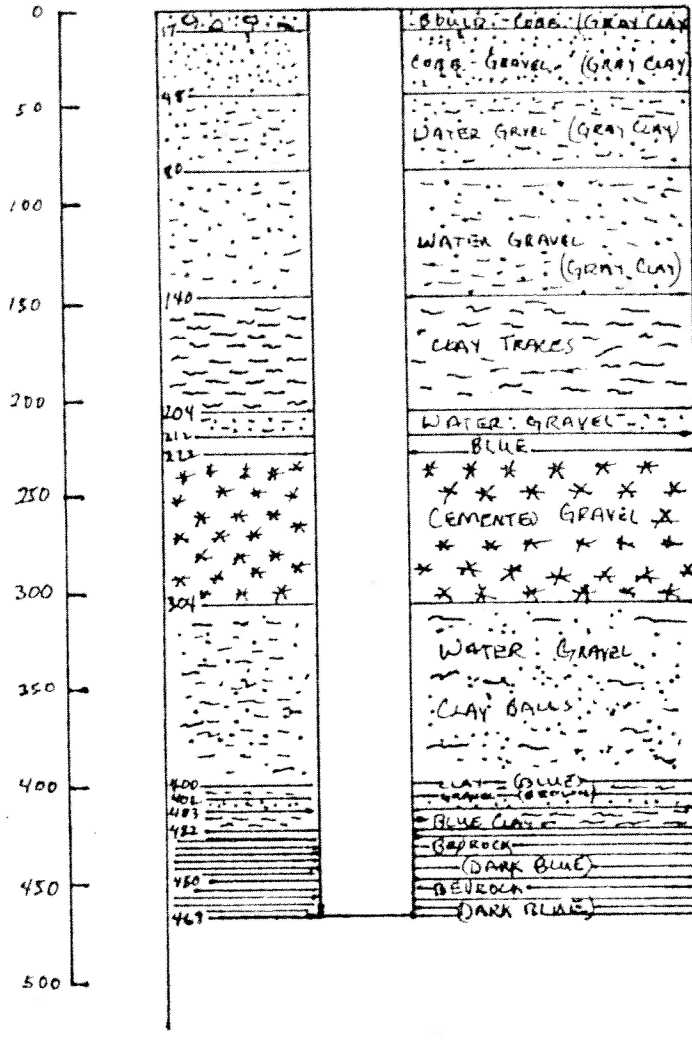 0
50
100
150
200
250
300
350
400
450
500
17
48
80
140
204
212
222
304
400
402
482
450
BOULD - COBB (GRAY CLAY
COBB - GRAVEL (GRAY CLAY)
WATER GRVEL (GRAY CLAY)
WATER GRAVEL
(GRAY CLAY)
CLAY TRACES
WATER GRAVEL
BLUE
CEMENTED GRAVEL
WATER GRAVEL
CLAY BALLS
CLAY (BLUE)
GRAVEL (BROWN)
BLUE CLAY
BEDROCK
(DARK BLUE)
BEDROCK
(DARK BLUE)